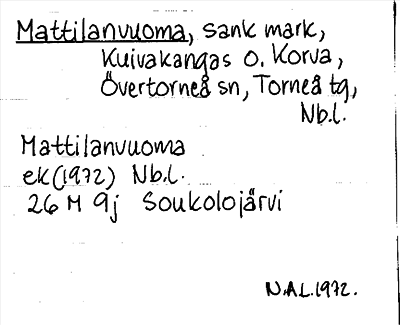 Mattilanvuoma, sank mark,
Kuivakangas o. Korva,
Övertorneå sn, Torneå tg,
Nb.l.
Mattilanvuoma
ek(1972) Nb.l.
26 M 9j Soukolojärvi
N.A.L.1972.